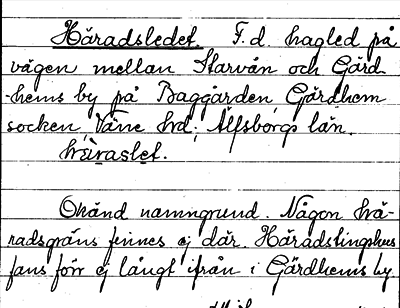 Häradsledet. F.d. hagled på
vägen mellan Starvån och Gärd
-hems by på Baggården, Gärdhem
socken, Väne hd; Älfsborgs län.
Okänd namngrund. Någon hä-
radsgräns finnes ej där. Häradstingshus
fans förr ej långt ifrån i Gärdhems by